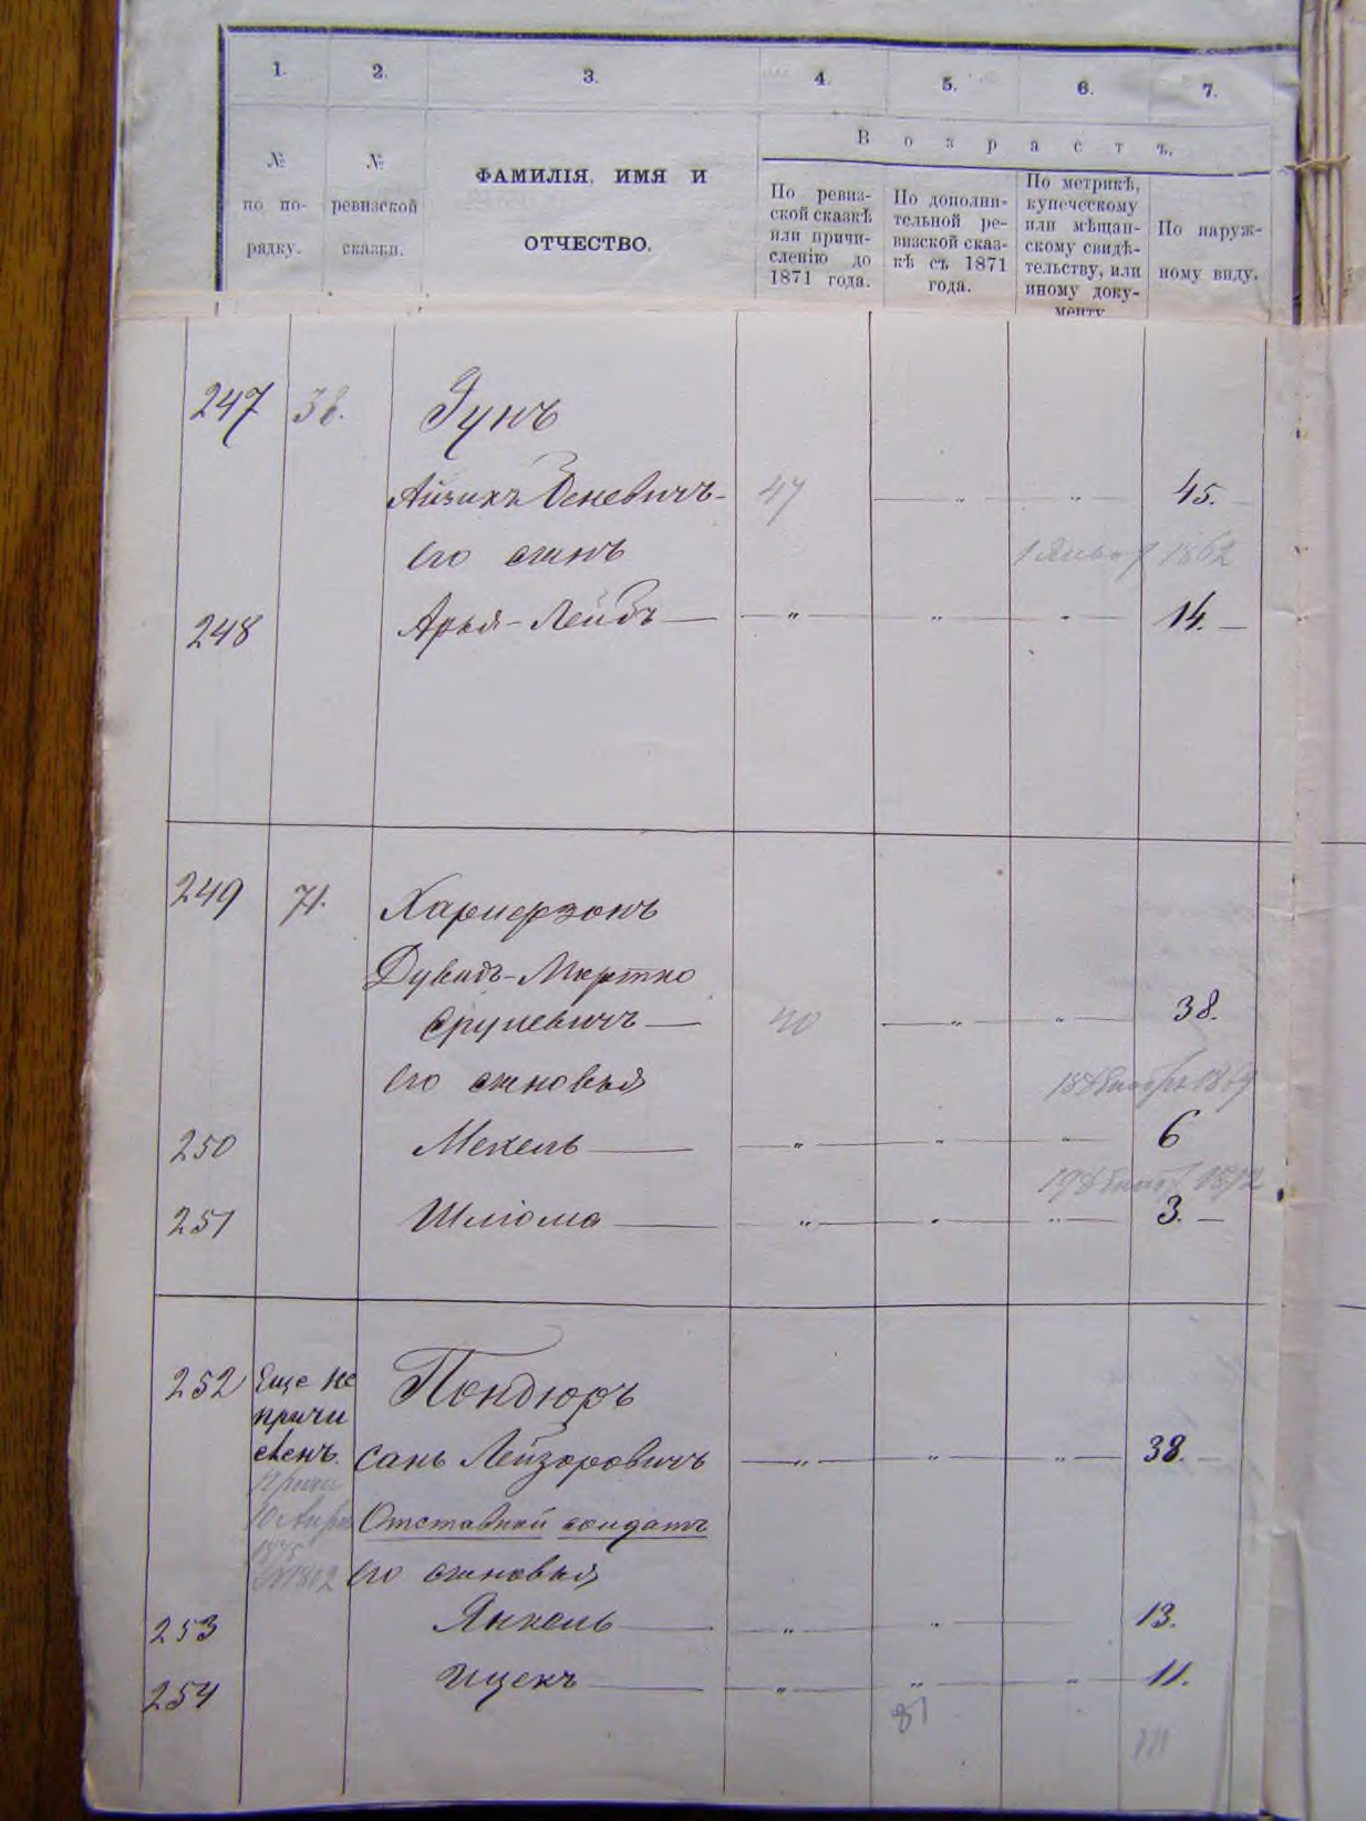 1. 2. 3. 4. 5. 6. 7.
Возрастъ.
№ по по-рядку.
№ ревизской сказки.
ФАМИЛІЯ, ИМЯ И
ОТЧЕСТВО.
По ревиз-
ской сказкѣ
или причи-
сленію до
1871 года.
По дополни-
тельной ре-
визской сказ-
кѣ съ 1871
года.
По метрикѣ,
купеческому
или мѣщан-
скому свидѣ-
тельству, или
иному доку-
менту
По наруж-
ному виду.
247 38. Зунъ
Айзикъ 47 " " 45.
его сынъ 1 Января 1862
248 Арья-Лейбъ " " " 14.
249 71.
Дувидъ-Мортко
Срулевичъ 40 " " 38.
его сыновья 1869
250 Мехель " " " 6
1872
251 Шліома " " " 3.
252 Еще не
причи
сленъ.
Пондюръ
Сань Лейзоровичъ " " " 38.
Отставной солдатъ
его сыновья
253 Янкель " " 13.
254 Ицекъ " " " 11.
81